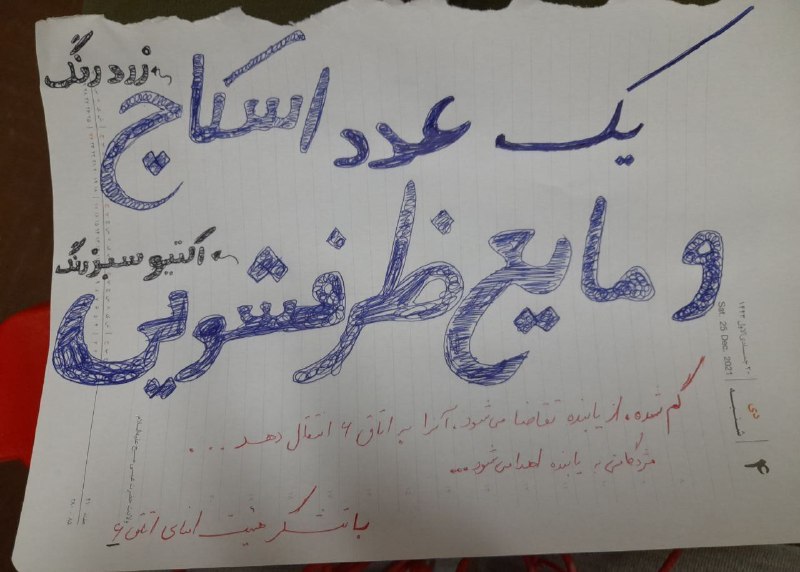 یک عدد اسکاچ زرد رنگ
و مایع ظرفشویی اکتیو سبز رنگ
گم شده، از یابنده تقاضا می‌شود، آنرا به اتاق ۶ انتقال دهد ...
مژدگانی به یابنده اهدا می‌شود ...
با تشکر هیئت امنای اتاق ۶
۴ شنبه دی
Sat. 25 Dec. 2021
۲۰ جمادی الاول ۱۴۴۳